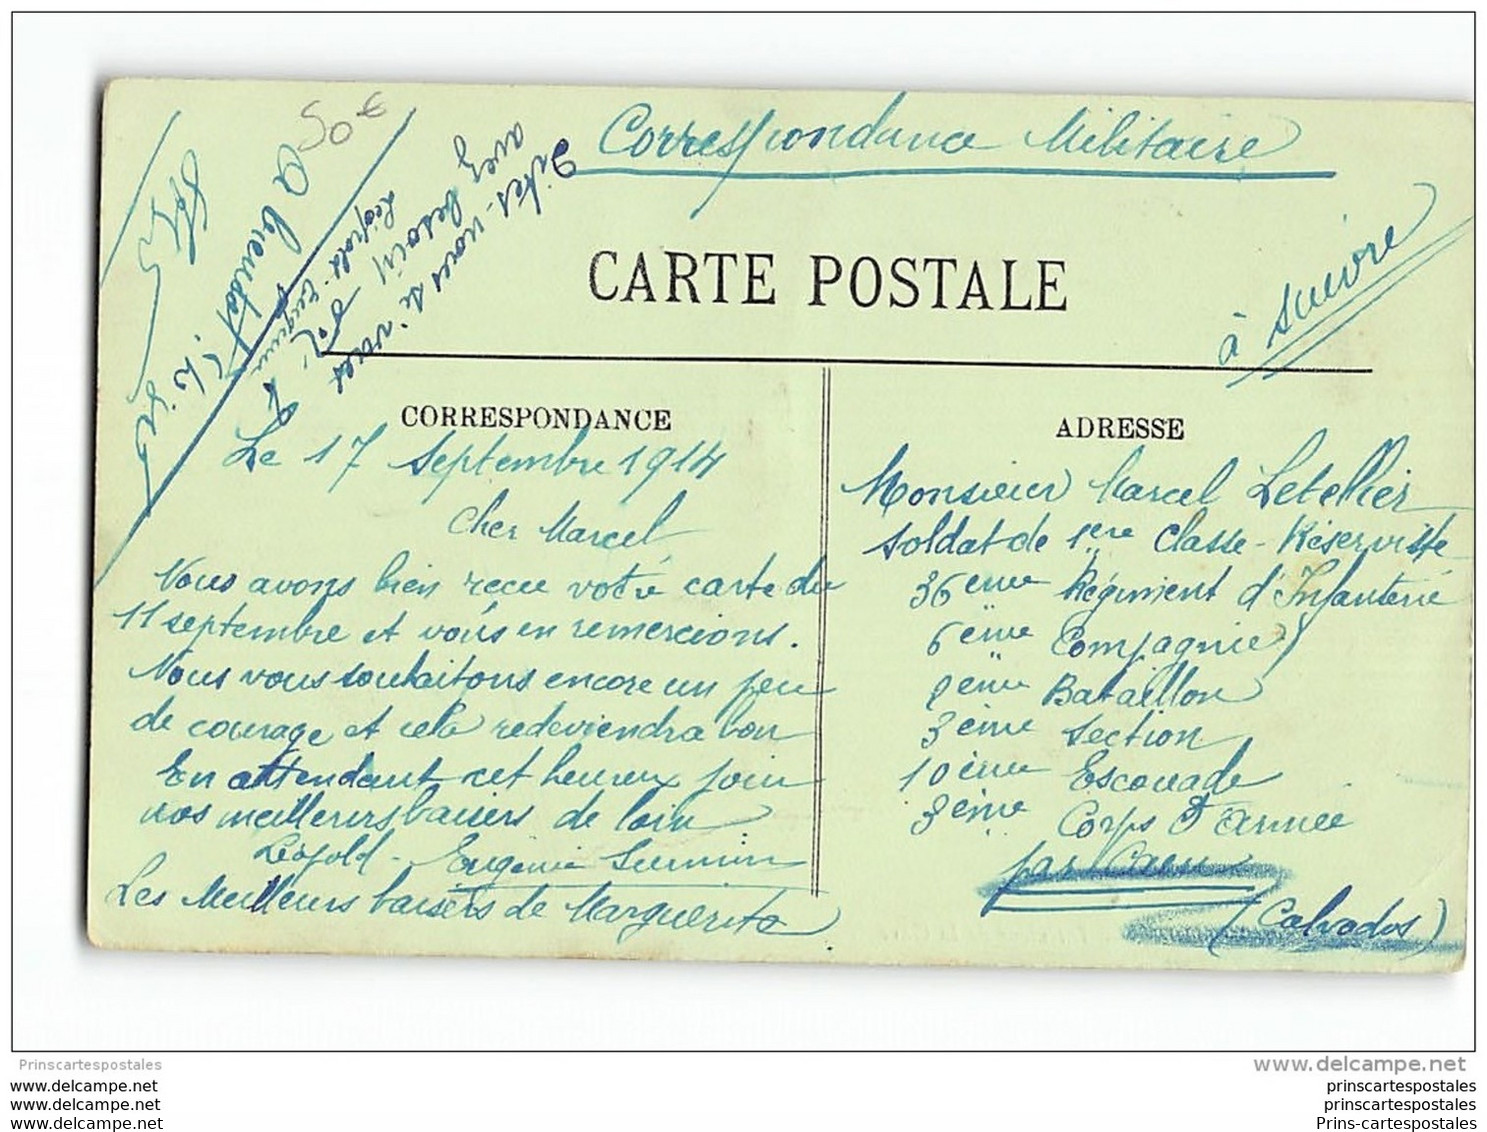 50 €
Correspondance Militaire
Dites-nous si vous
avez besoin
Léopold - Eugénie
A bientôt
à suivre
CARTE POSTALE
CORRESPONDANCE
Le 17 Septembre 1914
Cher Marcel
Nous avons bien recu votre carte du
11 septembre et vous en remercions.
Nous vous souhaitons encore un peu
de courage et cela redeviendra bon
En attendant cet heureux jour
nos meilleurs baisers de loin
Léopold - Eugénie
Les Meilleurs baisers de Marguerite
ADRESSE
Monsieur Marcel Letellier
Soldat de 1ère Classe - Réserviste
36ème Régiment d'Infanterie
6ème Compagnie
2ème Bataillon
3ème Section
10ème Escouade
3ème Corps d'armée
par Caen
(Calvados)
Prinscartespostales
www.delcampe.net
www.delcampe.net
prinscartespostales
www.delcampe.net
prins-cartespostales
www.delcampe.net
Prins-cartespostales